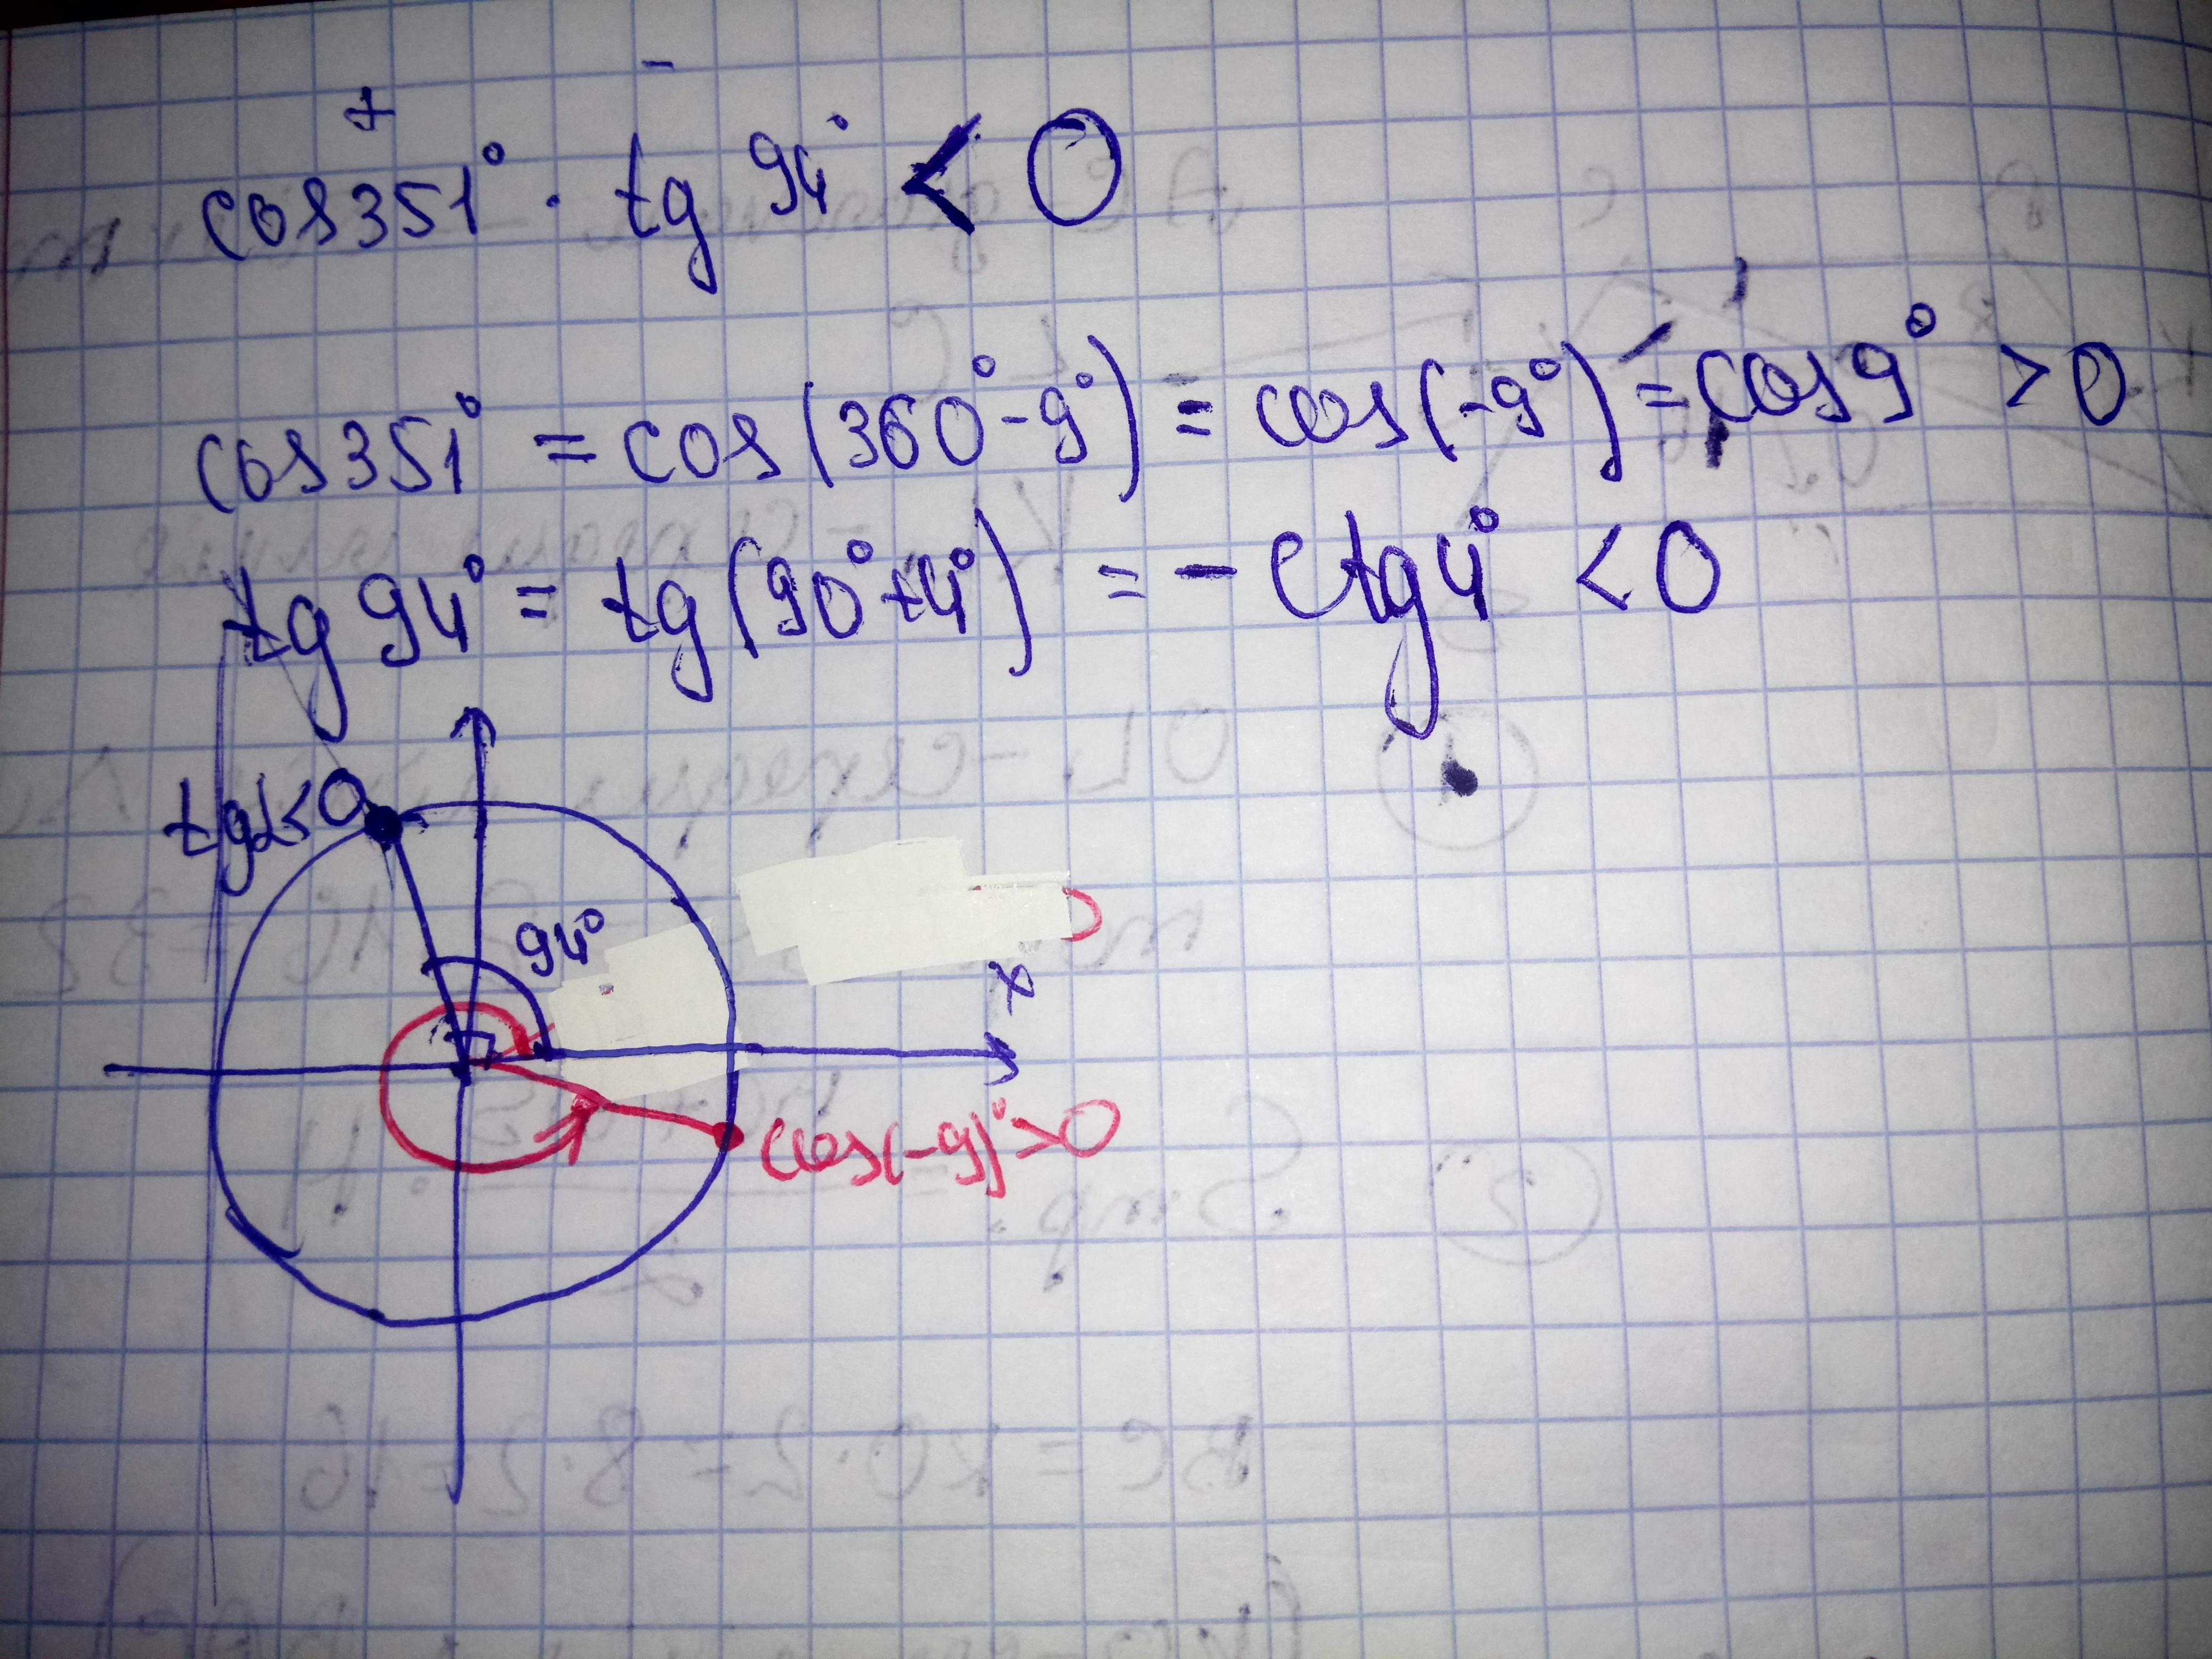 + -
cos351° · tg 94° < 0
cos351° = cos(360°-9°) = cos(-9°) = cos9° > 0
tg 94° = tg(90°+4°) = - ctg4° < 0
tgα<0
94°
x
cos(-9)°>0